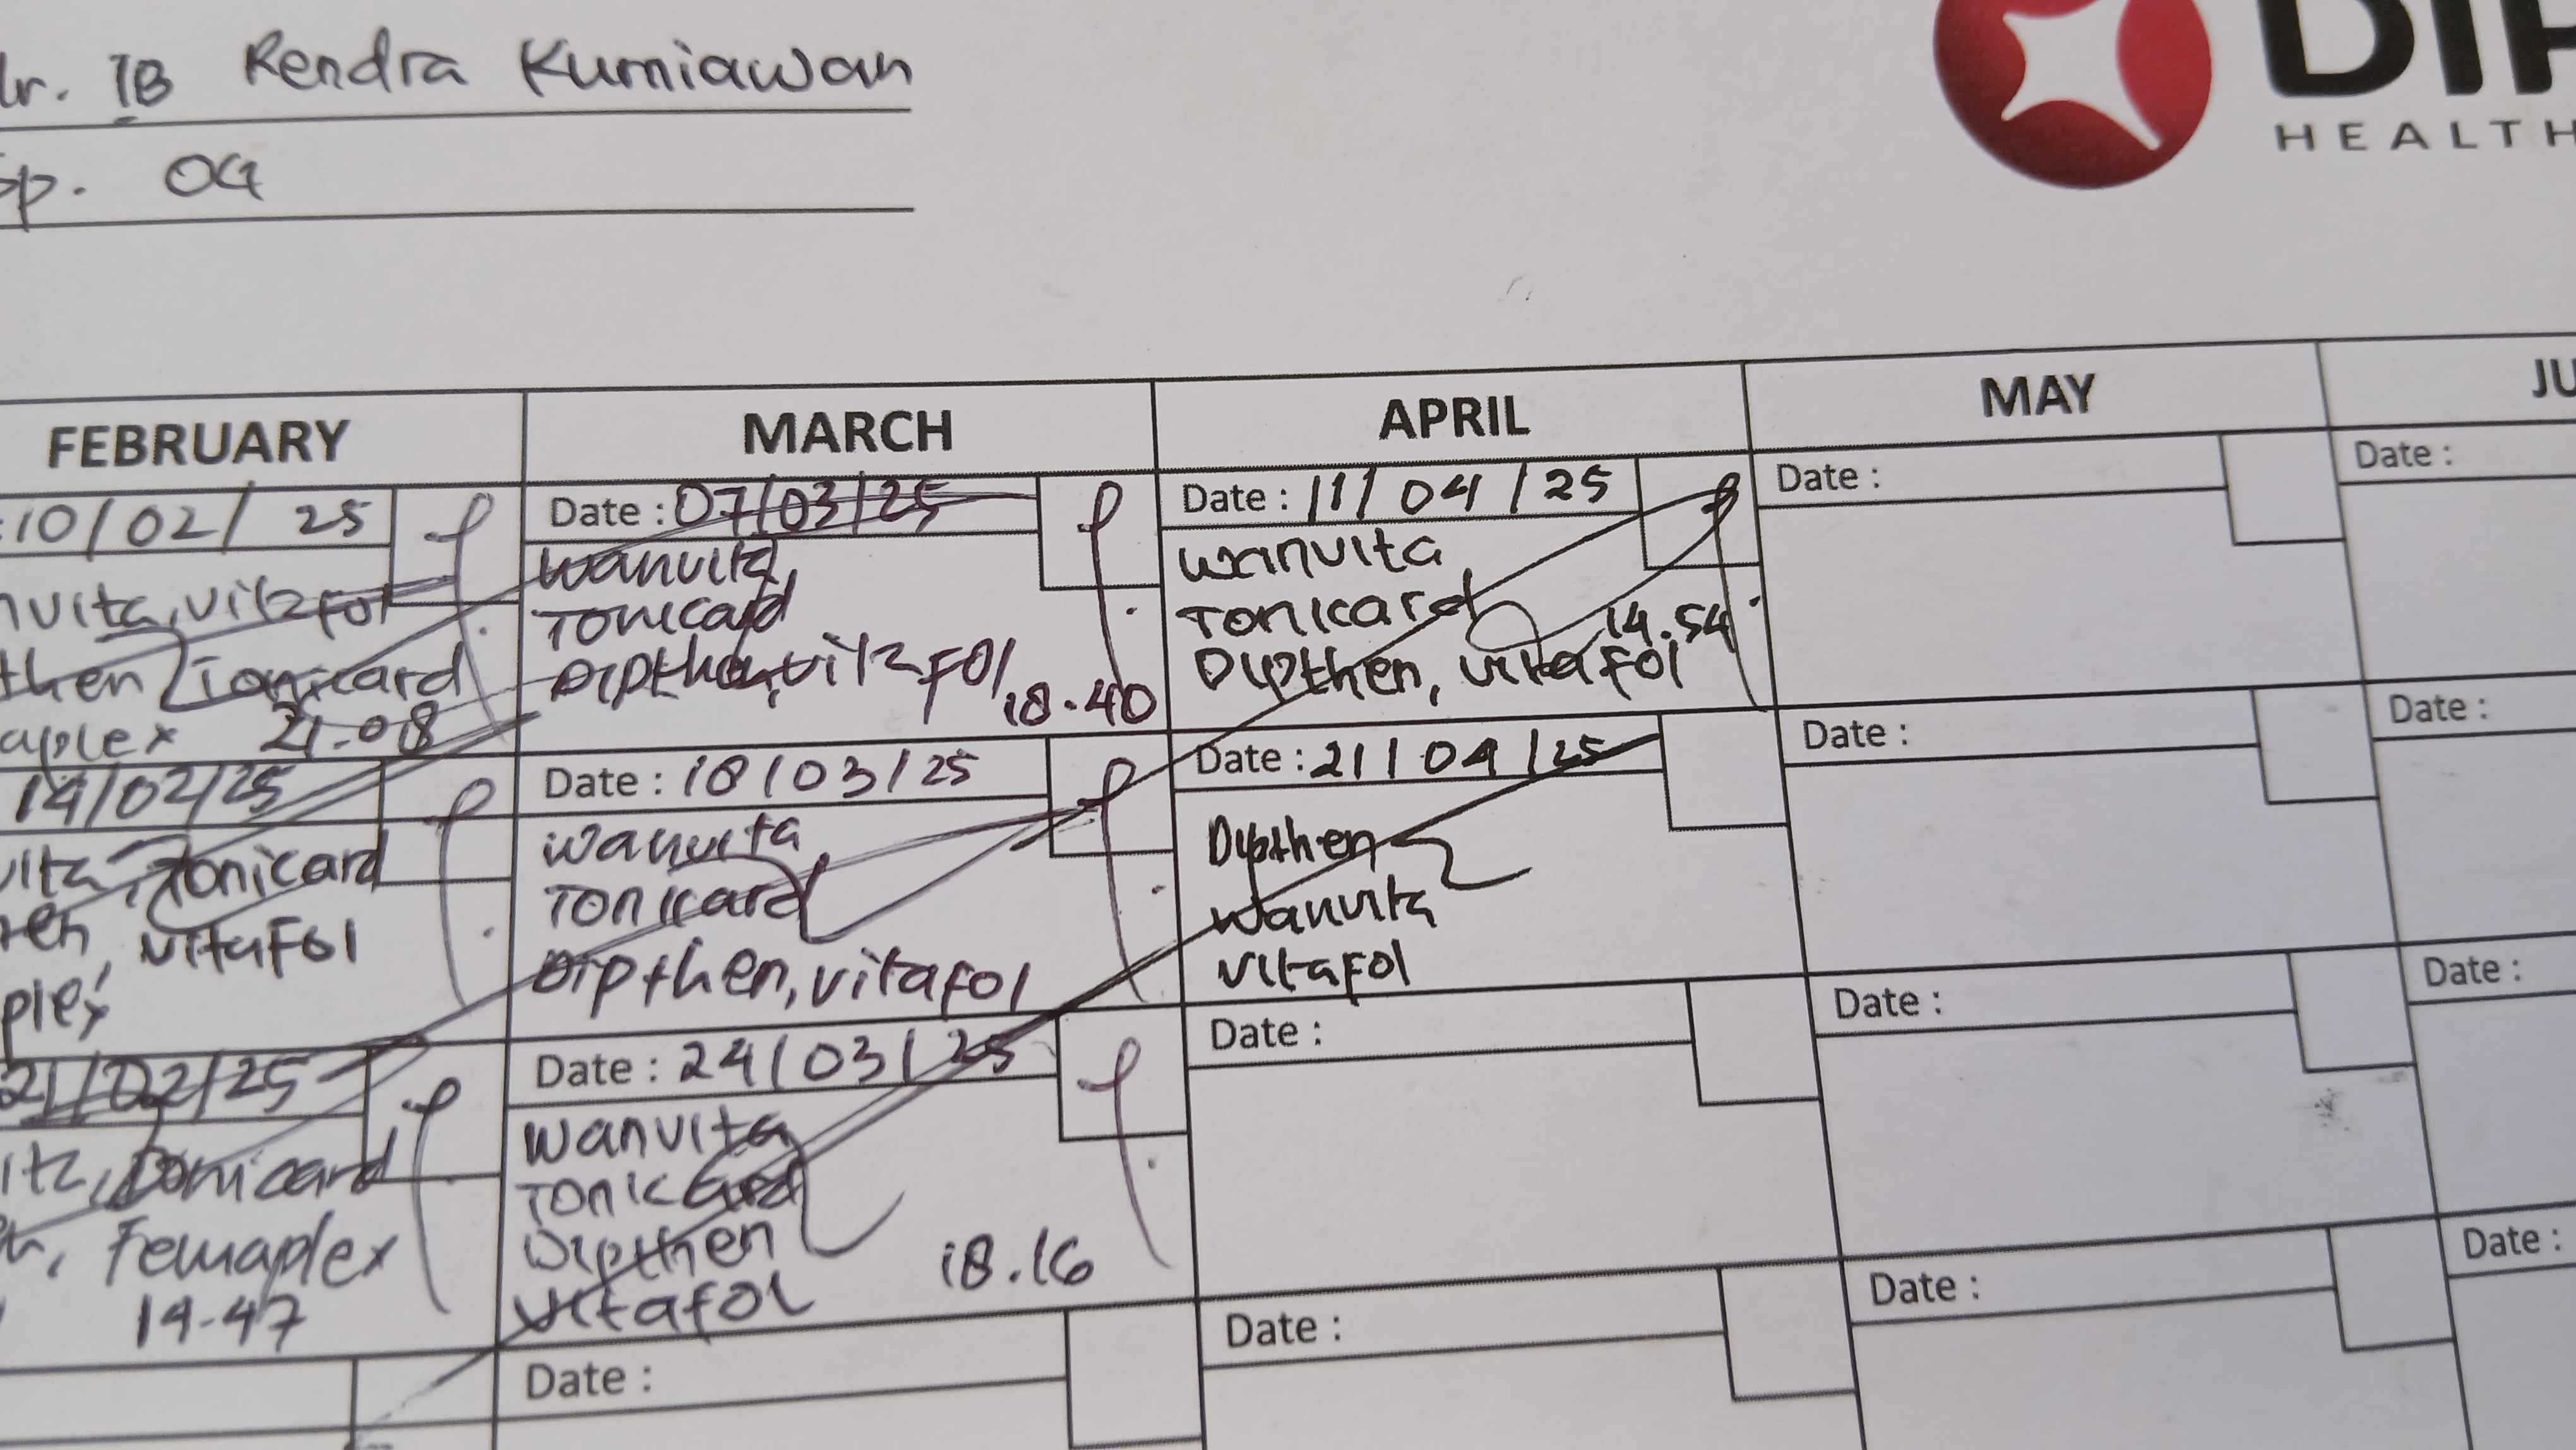 Dr. IB Rendra Kurniawan
Sp. OG
DIP
HEALTH
FEBRUARY
MARCH
APRIL
MAY
JU
:10/02/ 25
nvita, vitafol
then, Tonicard
aplex 21.08
14/02/25
vita, Tonicard
then, vitafol
plex
21/02/25
ita, Tonicard
Femaplex
14-47
Date : 07/03/25
Wanvita,
Tonicard
Dipthen, vitafol
18.40
Date : 18/03/25
Wanvita
Tonicard
Dipthen, vitafol
Date : 24/03/25
Wanvita
Tonicard
Dipthen
Vitafol
18.16
Date :
Date : 11/04/25
Wanvita
Tonicard
14.54
Dipthen, vitafol
Date : 21/04/25
Dipthen
Wanvita
Vitafol
Date :
Date :
Date :
Date :
Date :
Date :
Date :
Date :
Date :
Date :